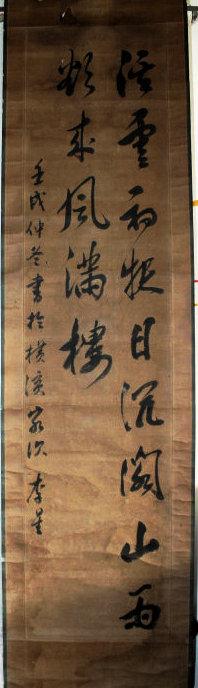 溪雲初起日沉閣山雨
欲來風滿樓
壬戌仲冬書於橫濱客次 李